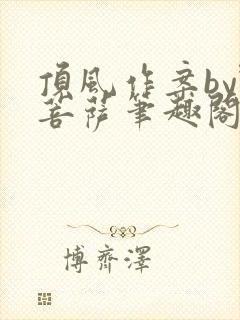 頂風作案by
菩薩筆趣閣
博齊澤